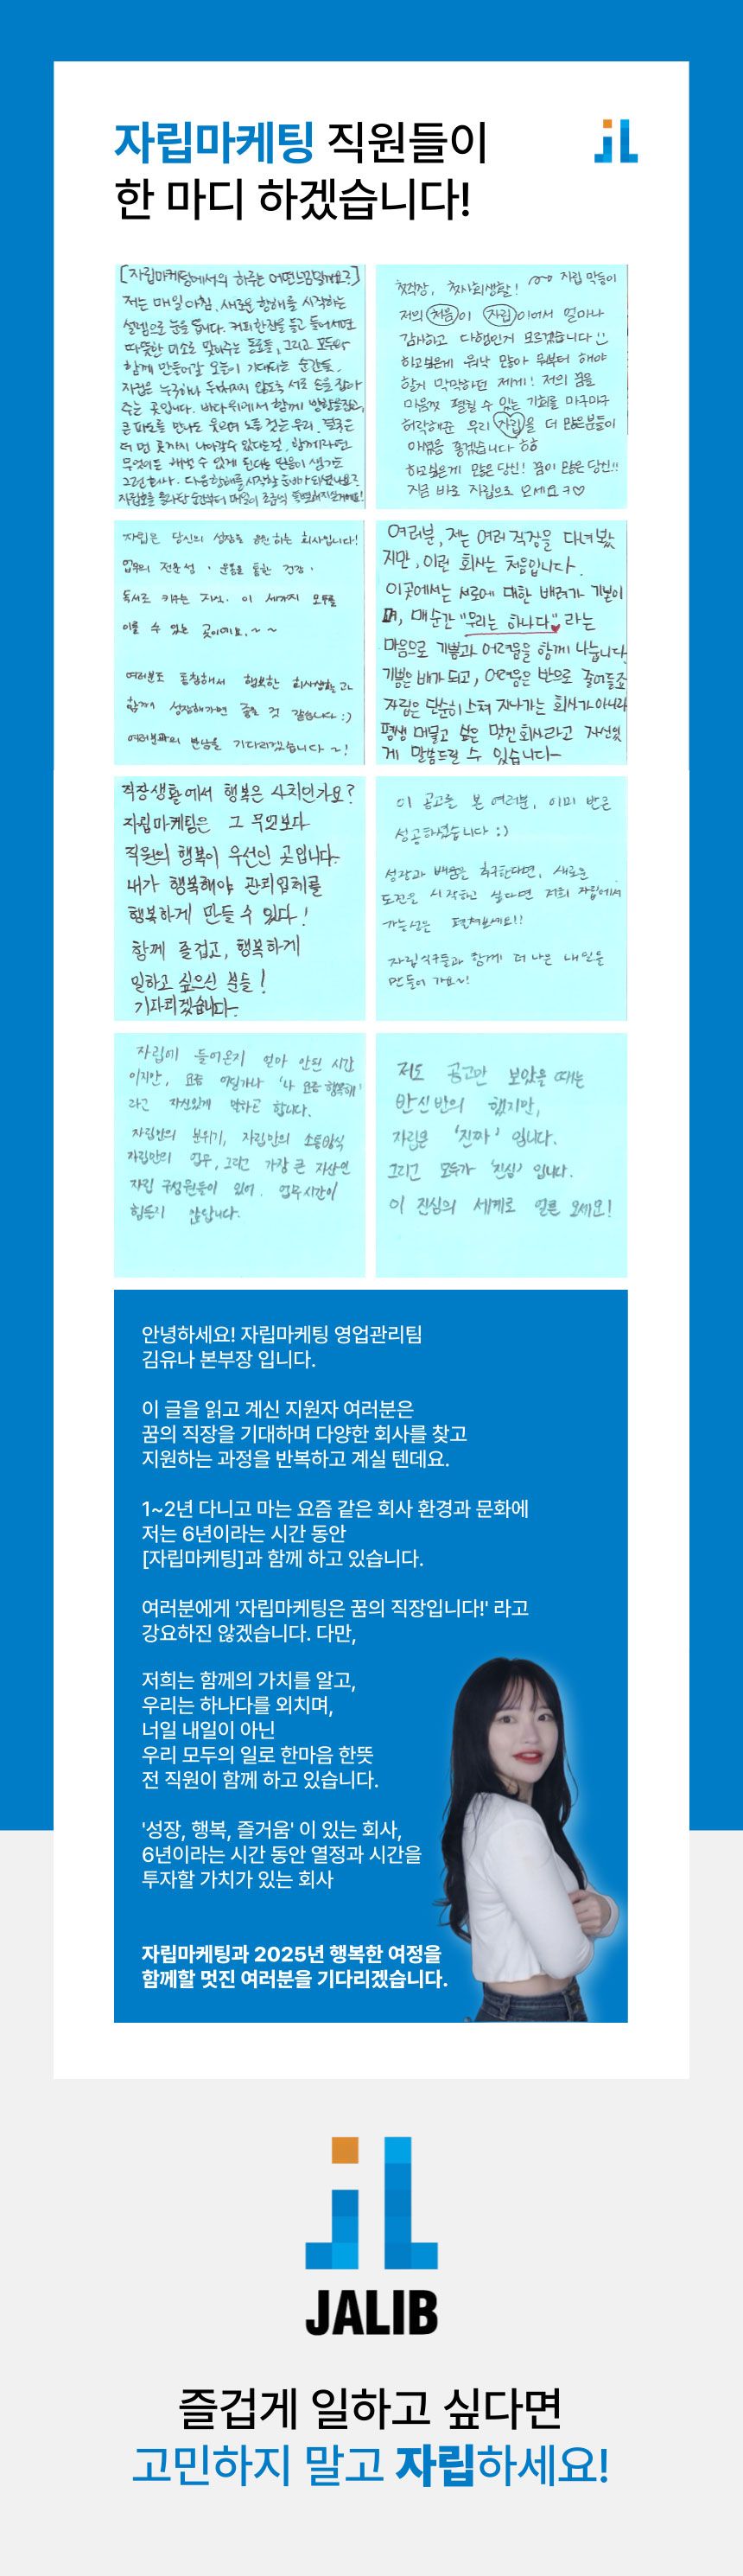 자립마케팅 직원들이
한 마디 하겠습니다!
[자립마케팅에서의 하루는 어떤느낌일까요?]
저는 매일 아침, 새로운 항해를 시작하는
설렘으로 눈을 뜹니다. 커피한잔을 들고 들어서면
따뜻한 미소로 맞아주는 동료들, 그리고 모두와
함께 만들어갈 오늘이 기대되는 순간들.
자립은 누구하나 뒤쳐지지 않도록 서로 손을 잡아
주는 곳입니다. 바다위에서 함께 방향을잡고,
큰 파도를 만나도 웃으며 노를 젓는 우리.
더 먼 곳까지 나아갈수 있다는걸, 함께라면
무엇이든 해낼 수 있게 된다는 믿음이 생기는
그런회사. 다음항해를 시작할 준비가 되셨나요?
자립호를 올라탄 순간부터 매일이 조금씩 특별해지실거예요!
첫직장, 첫사회생활! 자립 막둥이
저의 처음이 자립이어서 얼마나
감사하고 다행인지 모르겠습니다
하고싶은게 워낙 많아 뭐부터 해야
할지 막막하던 제게! 저의 꿈을
마음껏 펼칠 수 있는 기회를 마구마구
허락해준 우리 자립을 더 많은분들이
아셨음 좋겠습니다 ㅎㅎ
하고싶은게 많은 당신! 꿈이 많은 당신!!
지금 바로 자립으로 오세요 ㅋ♡
자립은 당신의 성장을 응원하는 회사입니다!
업무의 전문성, 운동을 통한 건강,
독서로 키우는 지식. 이 세가지 모두를
이룰 수 있는 곳이에요.~~
여러분도 동참해서 행복한 회사생활과
함께 성장해가면 좋을 것 같습니다 :)
여러분과의 만남을 기다리겠습니다 ~!
여러분, 저는 여러 직장을 다녀봤
지만, 이런 회사는 처음입니다.
이곳에서는 서로에 대한 배려가 기본이
며, 매순간 "우리는 하나다"♥ 라는
마음으로 기쁨과 어려움을 함께 나눕니다
기쁨은 배가 되고, 어려움은 반으로 줄어들죠
자립은 단순히 스쳐 지나가는 회사가 아니라
평생 머물고 싶은 멋진 회사라고 자신있
게 말씀드릴 수 있습니다-
직장생활에서 행복은 사치인가요?
자립마케팅은 그 무엇보다
직원의 행복이 우선인 곳입니다.
내가 행복해야 관리업체를
행복하게 만들 수 있다!
함께 즐겁고, 행복하게
일하고 싶으신 분들!
기다리겠습니다-
이 공고를 본 여러분, 이미 반은
성공하셨습니다 :)
성장과 배움을 추구한다면, 새로운
도전을 시작하고 싶다면 저희 자립에서
가능성을 펼쳐보세요!!
자립식구들과 함께 더 나은 내일을
만들어 가요~!
자립에 들어온지 얼마 안된 시간
이지만, 요즘 어딜가나 '나 요즘 행복해'
라고 자신있게 말하곤 합니다.
자립만의 분위기, 자립만의 소통방식
자립만의 업무, 그리고 가장 큰 자산인
자립 구성원들이 있어, 업무시간이
힘들지 않답니다.
저도 공고만 보았을 때는
반신반의 했지만,
자립은 '진짜' 입니다.
그리고 모두가 '진심' 입니다.
이 진심의 세계로 얼른 오세요!
안녕하세요! 자립마케팅 영업관리팀
김유나 본부장 입니다.
이 글을 읽고 계신 지원자 여러분은
꿈의 직장을 기대하며 다양한 회사를 찾고
지원하는 과정을 반복하고 계실 텐데요.
1~2년 다니고 마는 요즘 같은 회사 환경과 문화에
저는 6년이라는 시간 동안
[자립마케팅]과 함께 하고 있습니다.
여러분에게 '자립마케팅은 꿈의 직장입니다!' 라고
강요하진 않겠습니다. 다만,
저희는 함께의 가치를 알고,
우리는 하나다를 외치며,
너일 내일이 아닌
우리 모두의 일로 한마음 한뜻
전 직원이 함께 하고 있습니다.
'성장, 행복, 즐거움' 이 있는 회사,
6년이라는 시간 동안 열정과 시간을
투자할 가치가 있는 회사
자립마케팅과 2025년 행복한 여정을
함께할 멋진 여러분을 기다리겠습니다.
JALIB
즐겁게 일하고 싶다면
고민하지 말고 자립하세요!